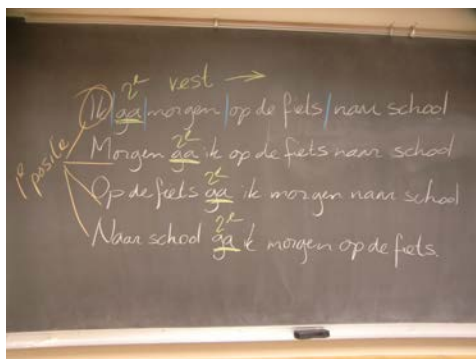 2e rest →
Ik | ga | morgen | op de fiets | naar school
2e
Morgen ga ik op de fiets naar school
2e
Op de fiets ga ik morgen naar school
2e
Naar school ga ik morgen op de fiets.
1e positie